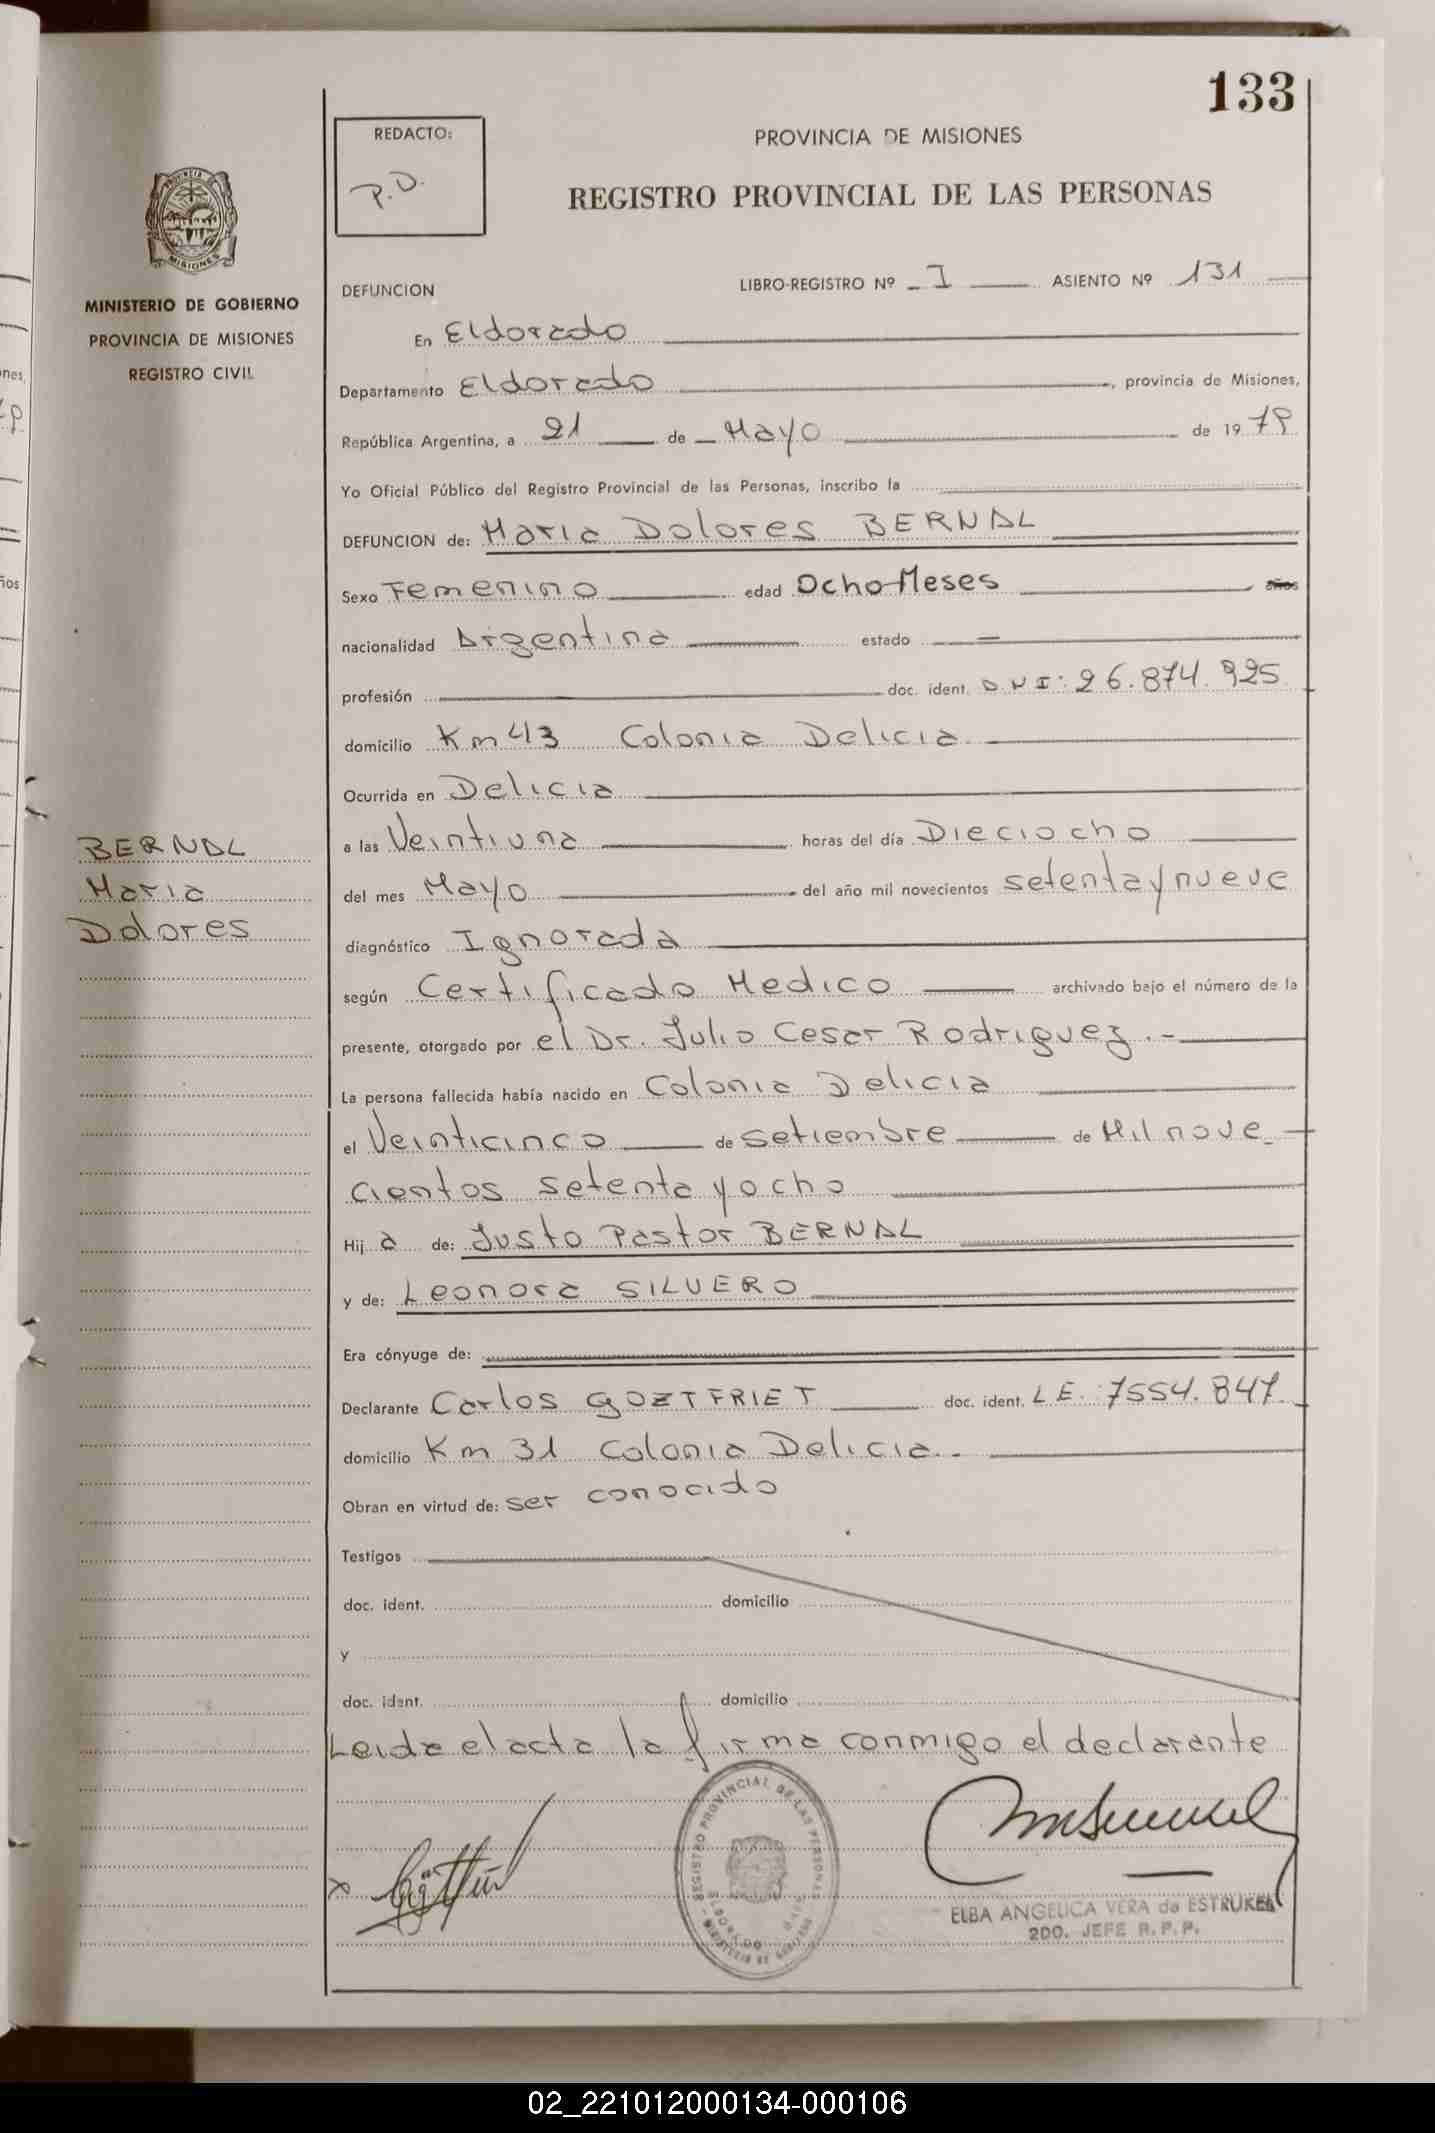 133
REDACTO:
P.D.
PROVINCIA DE MISIONES
REGISTRO PROVINCIAL DE LAS PERSONAS
PROVINCIA DE
MISIONES
MINISTERIO DE GOBIERNO
PROVINCIA DE MISIONES
REGISTRO CIVIL
DEFUNCION LIBRO-REGISTRO Nº I ASIENTO Nº 131
En Eldorado
Departamento Eldorado, provincia de Misiones,
República Argentina, a 21 de Mayo de 1979
Yo Oficial Público del Registro Provincial de las Personas, inscribo la
DEFUNCION de: Maria Dolores BERNAL
Sexo Femenino edad Ocho Meses años
nacionalidad Argentina estado —
profesión doc. ident. D.N.I: 26.874.925
domicilio Km 43 Colonia Delicia
Ocurrida en Delicia
a las Veintiuna horas del día Dieciocho
del mes Mayo del año mil novecientos setenta y nueve
diagnóstico Ignorada
según Certificado Medico archivado bajo el número de la
presente, otorgado por el Dr. Julio Cesar Rodriguez.-
La persona fallecida había nacido en Colonia Delicia
el Veinticinco de setiembre de Mil nove-
cientos setenta y ocho
Hij a de: Justo Pastor BERNAL
y de: Leonora SILVERO
Era cónyuge de:
Declarante Carlos GOETFRIET doc. ident. L E. 7554.847
domicilio Km 31 Colonia Delicia.-
Obran en virtud de: ser conocido
Testigos
doc. ident. domicilio
y
doc. ident. domicilio
Leida el acta la firma conmigo el declarante
BERNAL
Maria
Dolores
x
REGISTRO PROVINCIAL DE LAS PERSONAS
ELDORADO
MINISTERIO DE GOBIERNO
ELBA ANGELICA VERA de ESTRUKEL
2DO. JEFE R.P.P.
nes,
ños
02_221012000134-000106